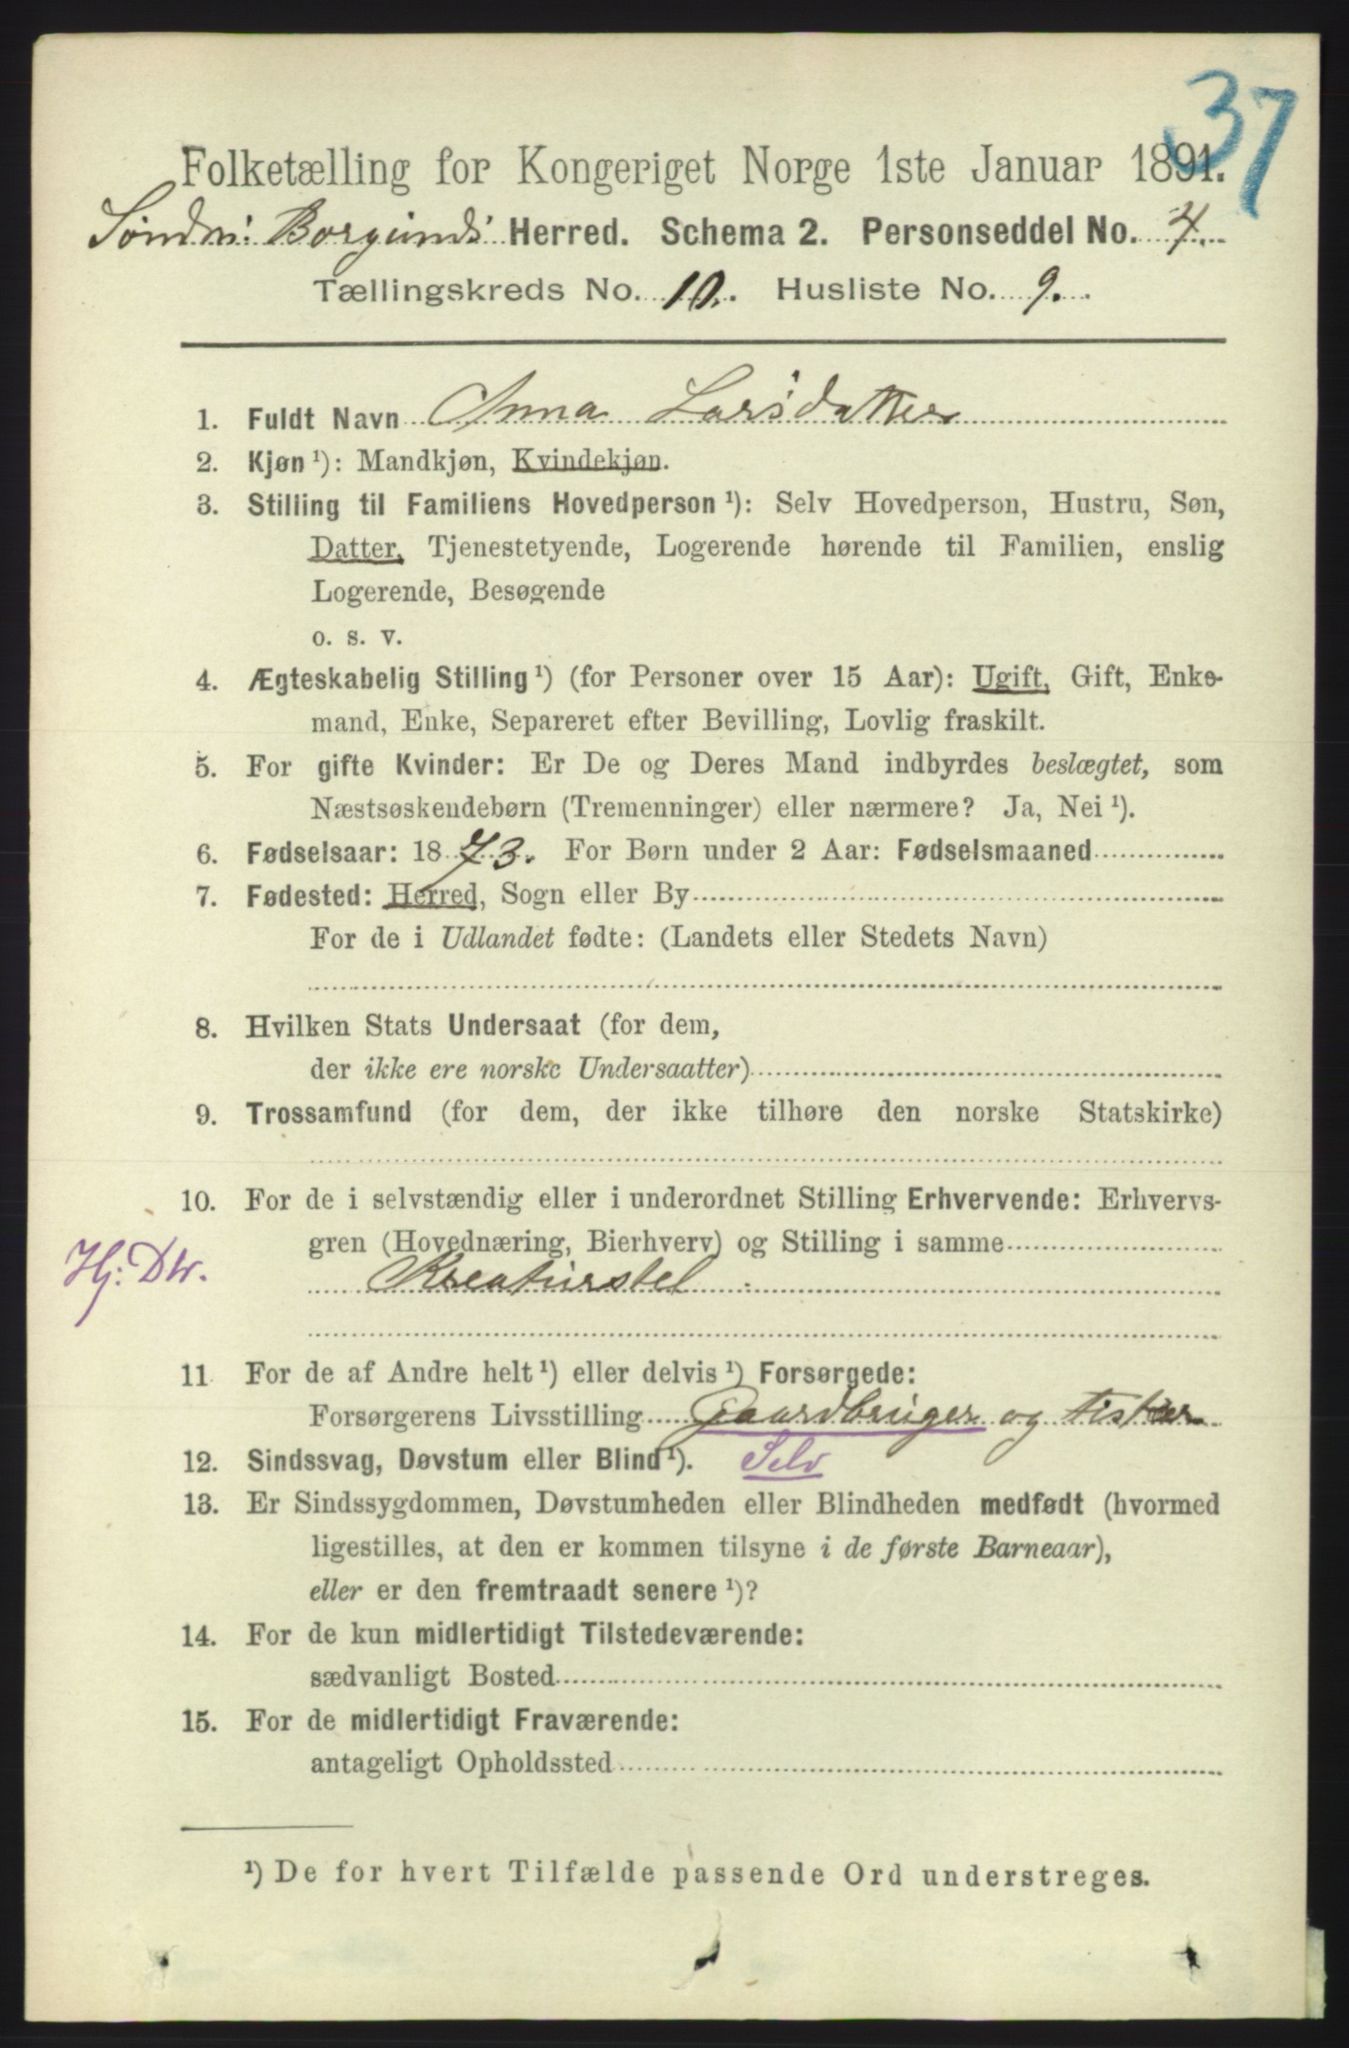 37
Folketælling for Kongeriget Norge 1ste Januar 1891.
Søndre Borgunds Herred. Schema 2. Personseddel No. 4.
Tællingskreds No. 10. Husliste No. 9.
1. Fuldt Navn Anna Larsdatter
2. Kjøn¹): Mandkjøn, Kvindekjøn.
3. Stilling til Familiens Hovedperson¹): Selv Hovedperson, Hustru, Søn,
Datter, Tjenestetyende, Logerende hørende til Familien, enslig
Logerende, Besøgende
o. s. v.
4. Ægteskabelig Stilling¹) (for Personer over 15 Aar): Ugift, Gift, Enke-
mand, Enke, Separeret efter Bevilling, Lovlig fraskilt.
5. For gifte Kvinder: Er De og Deres Mand indbyrdes beslægtet, som
Næstsøskendebørn (Tremenninger) eller nærmere? Ja, Nei¹).
6. Fødselsaar: 1873. For Børn under 2 Aar: Fødselsmaaned
7. Fødested: Herred, Sogn eller By
For de i Udlandet fødte: (Landets eller Stedets Navn)
8. Hvilken Stats Undersaat (for dem,
der ikke ere norske Undersaatter)
9. Trossamfund (for dem, der ikke tilhøre den norske Statskirke)
10. For de i selvstændig eller i underordnet Stilling Erhvervende: Erhvervs-
gren (Hovednæring, Bierhverv) og Stilling i samme
Hj: Dtr. Kreaturstel
11 For de af Andre helt¹) eller delvis¹) Forsørgede:
Forsørgerens Livsstilling Gaardbruger og fisker
12. Sindssvag, Døvstum eller Blind¹). Selv
13. Er Sindssygdommen, Døvstumheden eller Blindheden medfødt (hvormed
ligestilles, at den er kommen tilsyne i de første Barneaar),
eller er den fremtraadt senere¹)?
14. For de kun midlertidigt Tilstedeværende:
sædvanligt Bosted
15. For de midlertidigt Fraværende:
antageligt Opholdssted
¹) De for hvert Tilfælde passende Ord understreges.